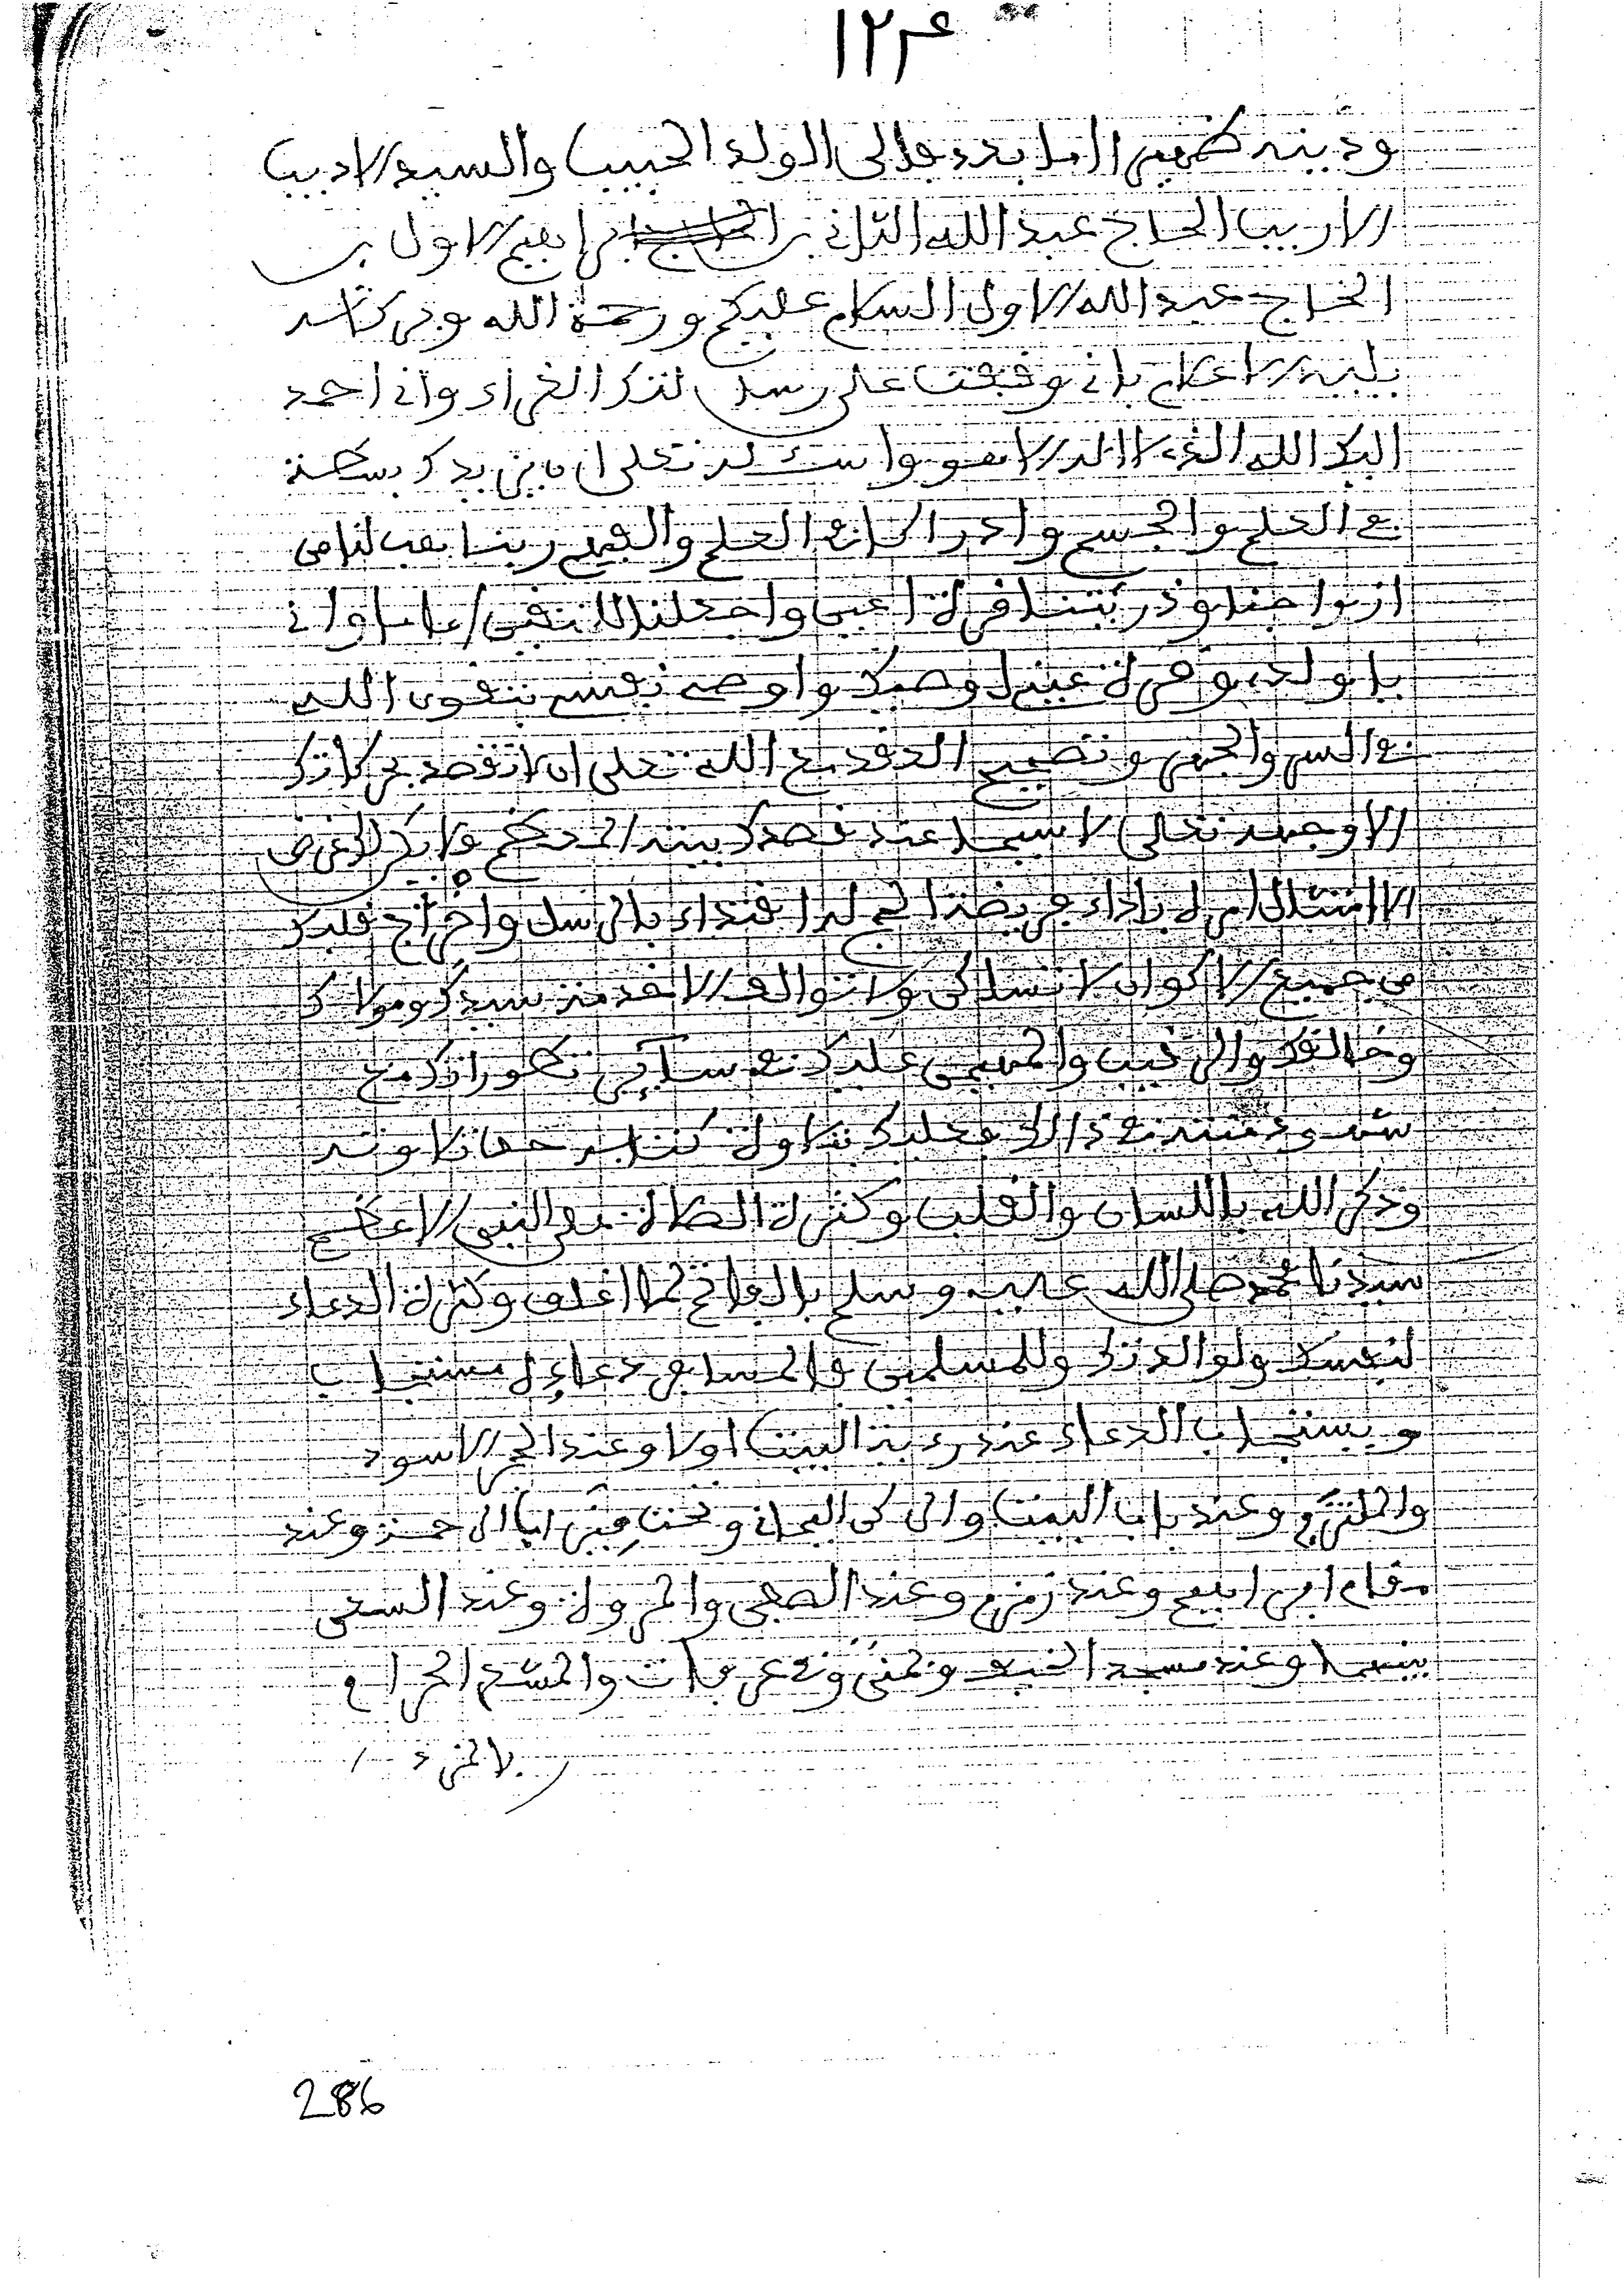 ١٢٤
ودينه ظهيرا اما بعد فالى الولد الحبيب والسيد الاديب
الاريب الحاج عبد الله الثاني بن ابراهيم الاول بن
الحاج عبد الله الاول السلام عليكم ورحمة الله وبركاته
يليه الاعلام باني وقفت على رسالتك الغراء واني احمد
اليك الله الذي لا اله الا هو واسئله تعلى ان يزيدك بسطة
في العلم والجسم وادراكا في العلم والفهم ربنا هب لنا من
ازواجنا وذريتنا قرة اعين واجعلنا للمتقين اماما واني
يا ولدي وقرة عيني اوصيك واوصي نفسي بتقوى الله
في السر والجهر وتصحيح العقد مع الله تعلى ان لا تقصد بحركاتك
الا وجهه تعالى لا سيما عند قصدك بيته المعظم ولا يكن الغرض
الا امتثال امره باداء فريضة الحج له اقتداء بالرسل واخرج قلبك
من جميع الاكوان لا تساكن ولا توالف الا خدمة سيدك ومولاك
وخالقك والرقيب والمهيمن عليك في سائر تطوراتك مع
في ذالك فعليك بتلاوة كتابه حق تلاوته
وذكر الله باللسان والقلب وكثرة الصلاة على النبي الاعظم
سيدنا محمد صلى الله عليه وسلم بالفاتح لما اغلق وكثرة الدعاء
لنفسك ولوالديك وللمسلمين والمسافر دعاءه مستجاب
ويستجاب الدعاء عند رءية البيت اولا وعند الحجر الاسود
والملتزم وعند باب البيت والركن اليماني وتحت ميزاب الرحمة وعند
مقام ابراهيم وعند زمزم وعند الصفى والمروة وعند السعي
بينهما وعند مسجد الخيف وبمنى وفي عرفات والمشعر الحرام
بالمزد
286